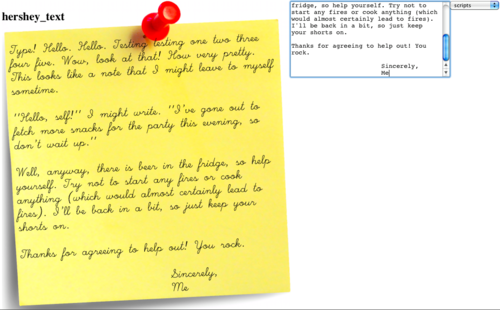 hershey_text
Type! Hello. Hello. Testing testing one two three
four five. Wow, look at that! How very pretty.
This looks like a note that I might leave to myself
sometime.
"Hello, self!" I might write. "I've gone out to
fetch more snacks for the party this evening, so
don't wait up."
Well, anyway, there is beer in the fridge, so help
yourself. Try not to start any fires or cook
anything (which would almost certainly lead to
fires). I'll be back in a bit, so just keep your
shorts on.
Thanks for agreeing to help out! You rock.
Sincerely,
Me
fridge, so help yourself. Try not to
start any fires or cook anything (which
would almost certainly lead to fires).
I'll be back in a bit, so just keep
your shorts on.
Thanks for agreeing to help out! You
rock.
Sincerely,
Me
scripts